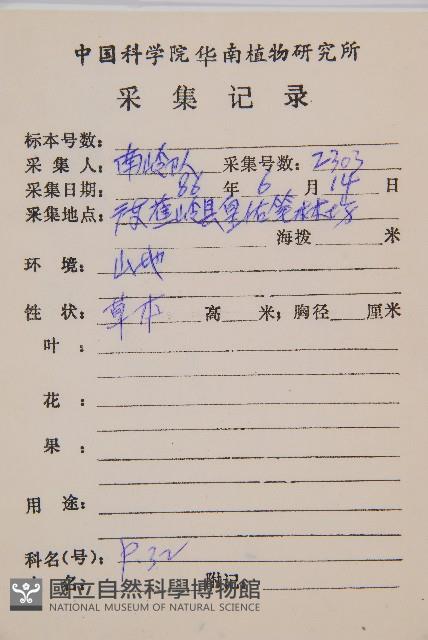 中国科学院华南植物研究所
采集记录
标本号数:
采集人: 南岭队 采集号数: 2303
采集日期: 86 年 6 月 14 日
采集地点: 广东蕉岭县皇佑笔林场
海拨 米
环境: 山地
性状: 草本 高 米; 胸径 厘米
叶:
花:
果:
用途:
科名(号): P.32
名: 附记:
國立自然科學博物館
NATIONAL MUSEUM OF NATURAL SCIENCE